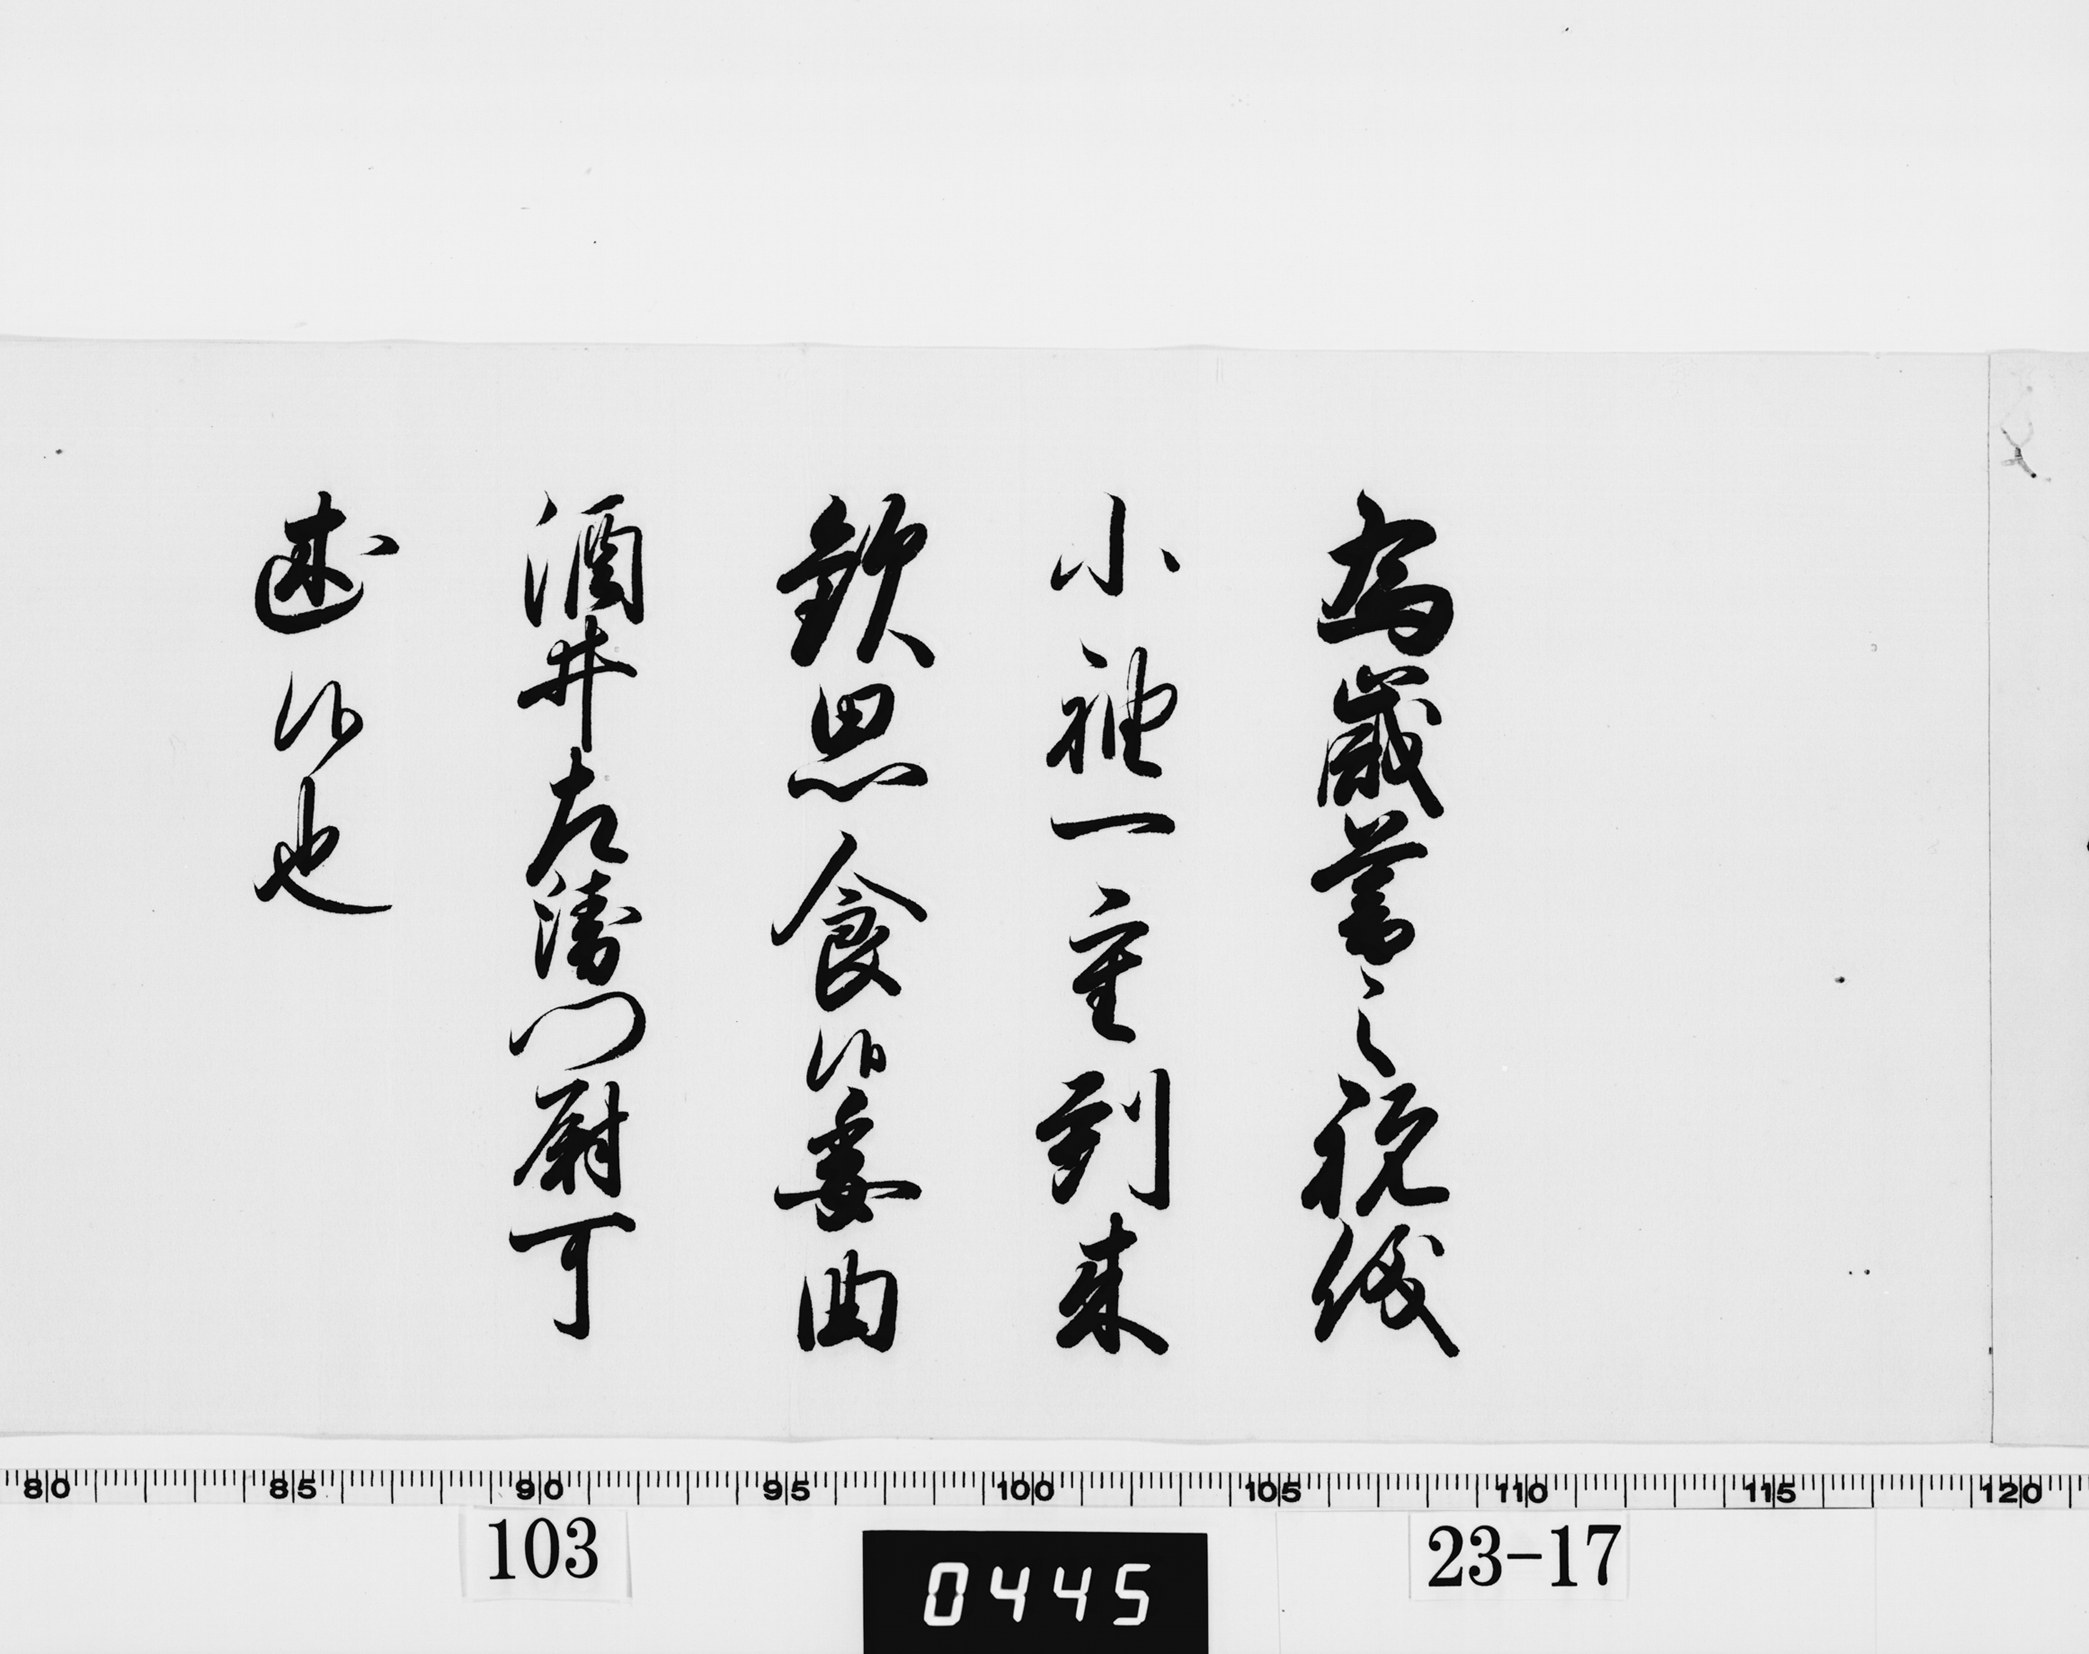 為歳暮之祝儀
小袖一重到来
歓思食候委曲
酒井左衛門尉可
述候也
80 85 90 95 100 105 110 115 120
103
0445
23-17